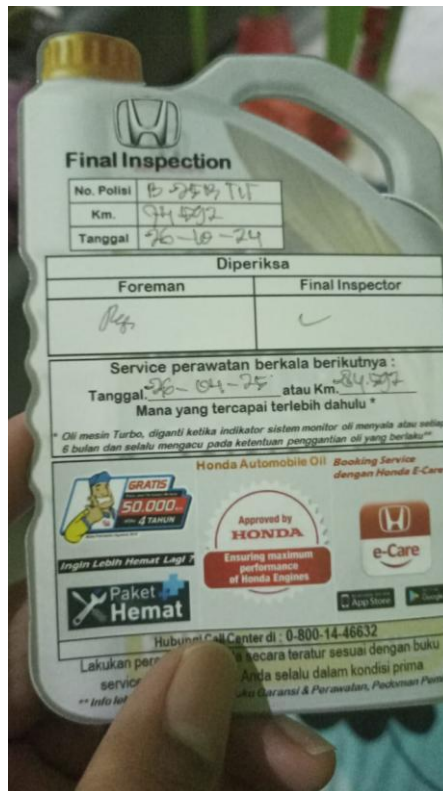 Final Inspection
No. Polisi
Km. 74.592
Tanggal 26-10-24
Diperiksa
Foreman Final Inspector
Service perawatan berkala berikutnya :
Tanggal. 26-04-25 atau Km. 84.592
Mana yang tercapai terlebih dahulu *
* Oli mesin Turbo, diganti ketika indikator sistem monitor oli menyala atau setiap
6 bulan dan selalu mengacu pada ketentuan penggantian oli yang berlaku**
GRATIS
50.000
4 TAHUN
Ingin Lebih Hemat Lagi ?
Paket +
Hemat
Honda Automobile Oil
Approved by
HONDA
Ensuring maximum
performance
of Honda Engines
Booking Service
dengan Honda E-Care
e-Care
App Store
Google
Hubungi Call Center di : 0-800-14-46632
Lakukan secara teratur sesuai dengan buku
Anda selalu dalam kondisi prima
Garansi & Perawatan, Pedoman